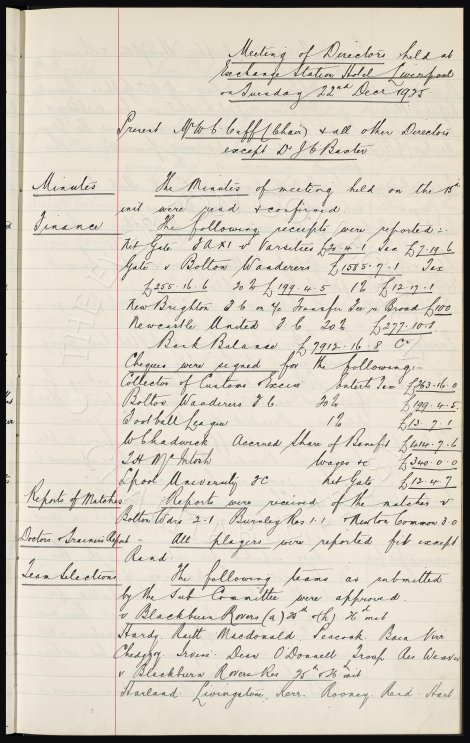 Meeting of Directors held at
Exchange Station Hotel Liverpool
on Tuesday 22nd Decr 1925
Present Mr W C Cuff (Chair) & all other Directors
except Dr J C Baxter
Minutes The Minutes of meeting held on the 15th
inst were read & confirmed.
Finance The following receipts were reported :-
Net Gate "A" XI v Varsities £24.4.1 Tax £7.19.6
Gate v Bolton Wanderers £1585.7.1 Tax
£255.16.6 20% £199.4.5 1% £12.17.1
New Brighton F C on a/c Transfer Fee re Broad £100
Newcastle United F C 20% £277.10.1
Bank Balance £7912.16.8 Cr
Cheques were signed for the following:-
Collector of Customs & Excise Enterts Tax £263.16.0
Bolton Wanderers F C 20% £199.4.5
Football League 1% £13.7.1
W Chadwick Accrued Share of Benefit £414.7.6
T H McIntosh Wages &c £340.0.0
Lpool University FC Net Gate £12.4.7
Reports of Matches Reports were received of the matches v
Bolton Wdrs 2-1, Burnley Res 1-1 & Newton Common 3-0
Doctors & Trainers Report - All players were reported fit except
Rand.
Team Selections The following teams as submitted
by the Sub Committee were approved
v Blackburn Rovers (a) 25th & (h) 26th inst
Hardy Raitt Macdonald Peacock Bain Virr
Chedgzoy Irvine Dean O'Donnell Troup Res Weaver
v Blackburn Rovers Res 25th & 26th inst
Harland Livingstone Kerr Rooney Reid Hart